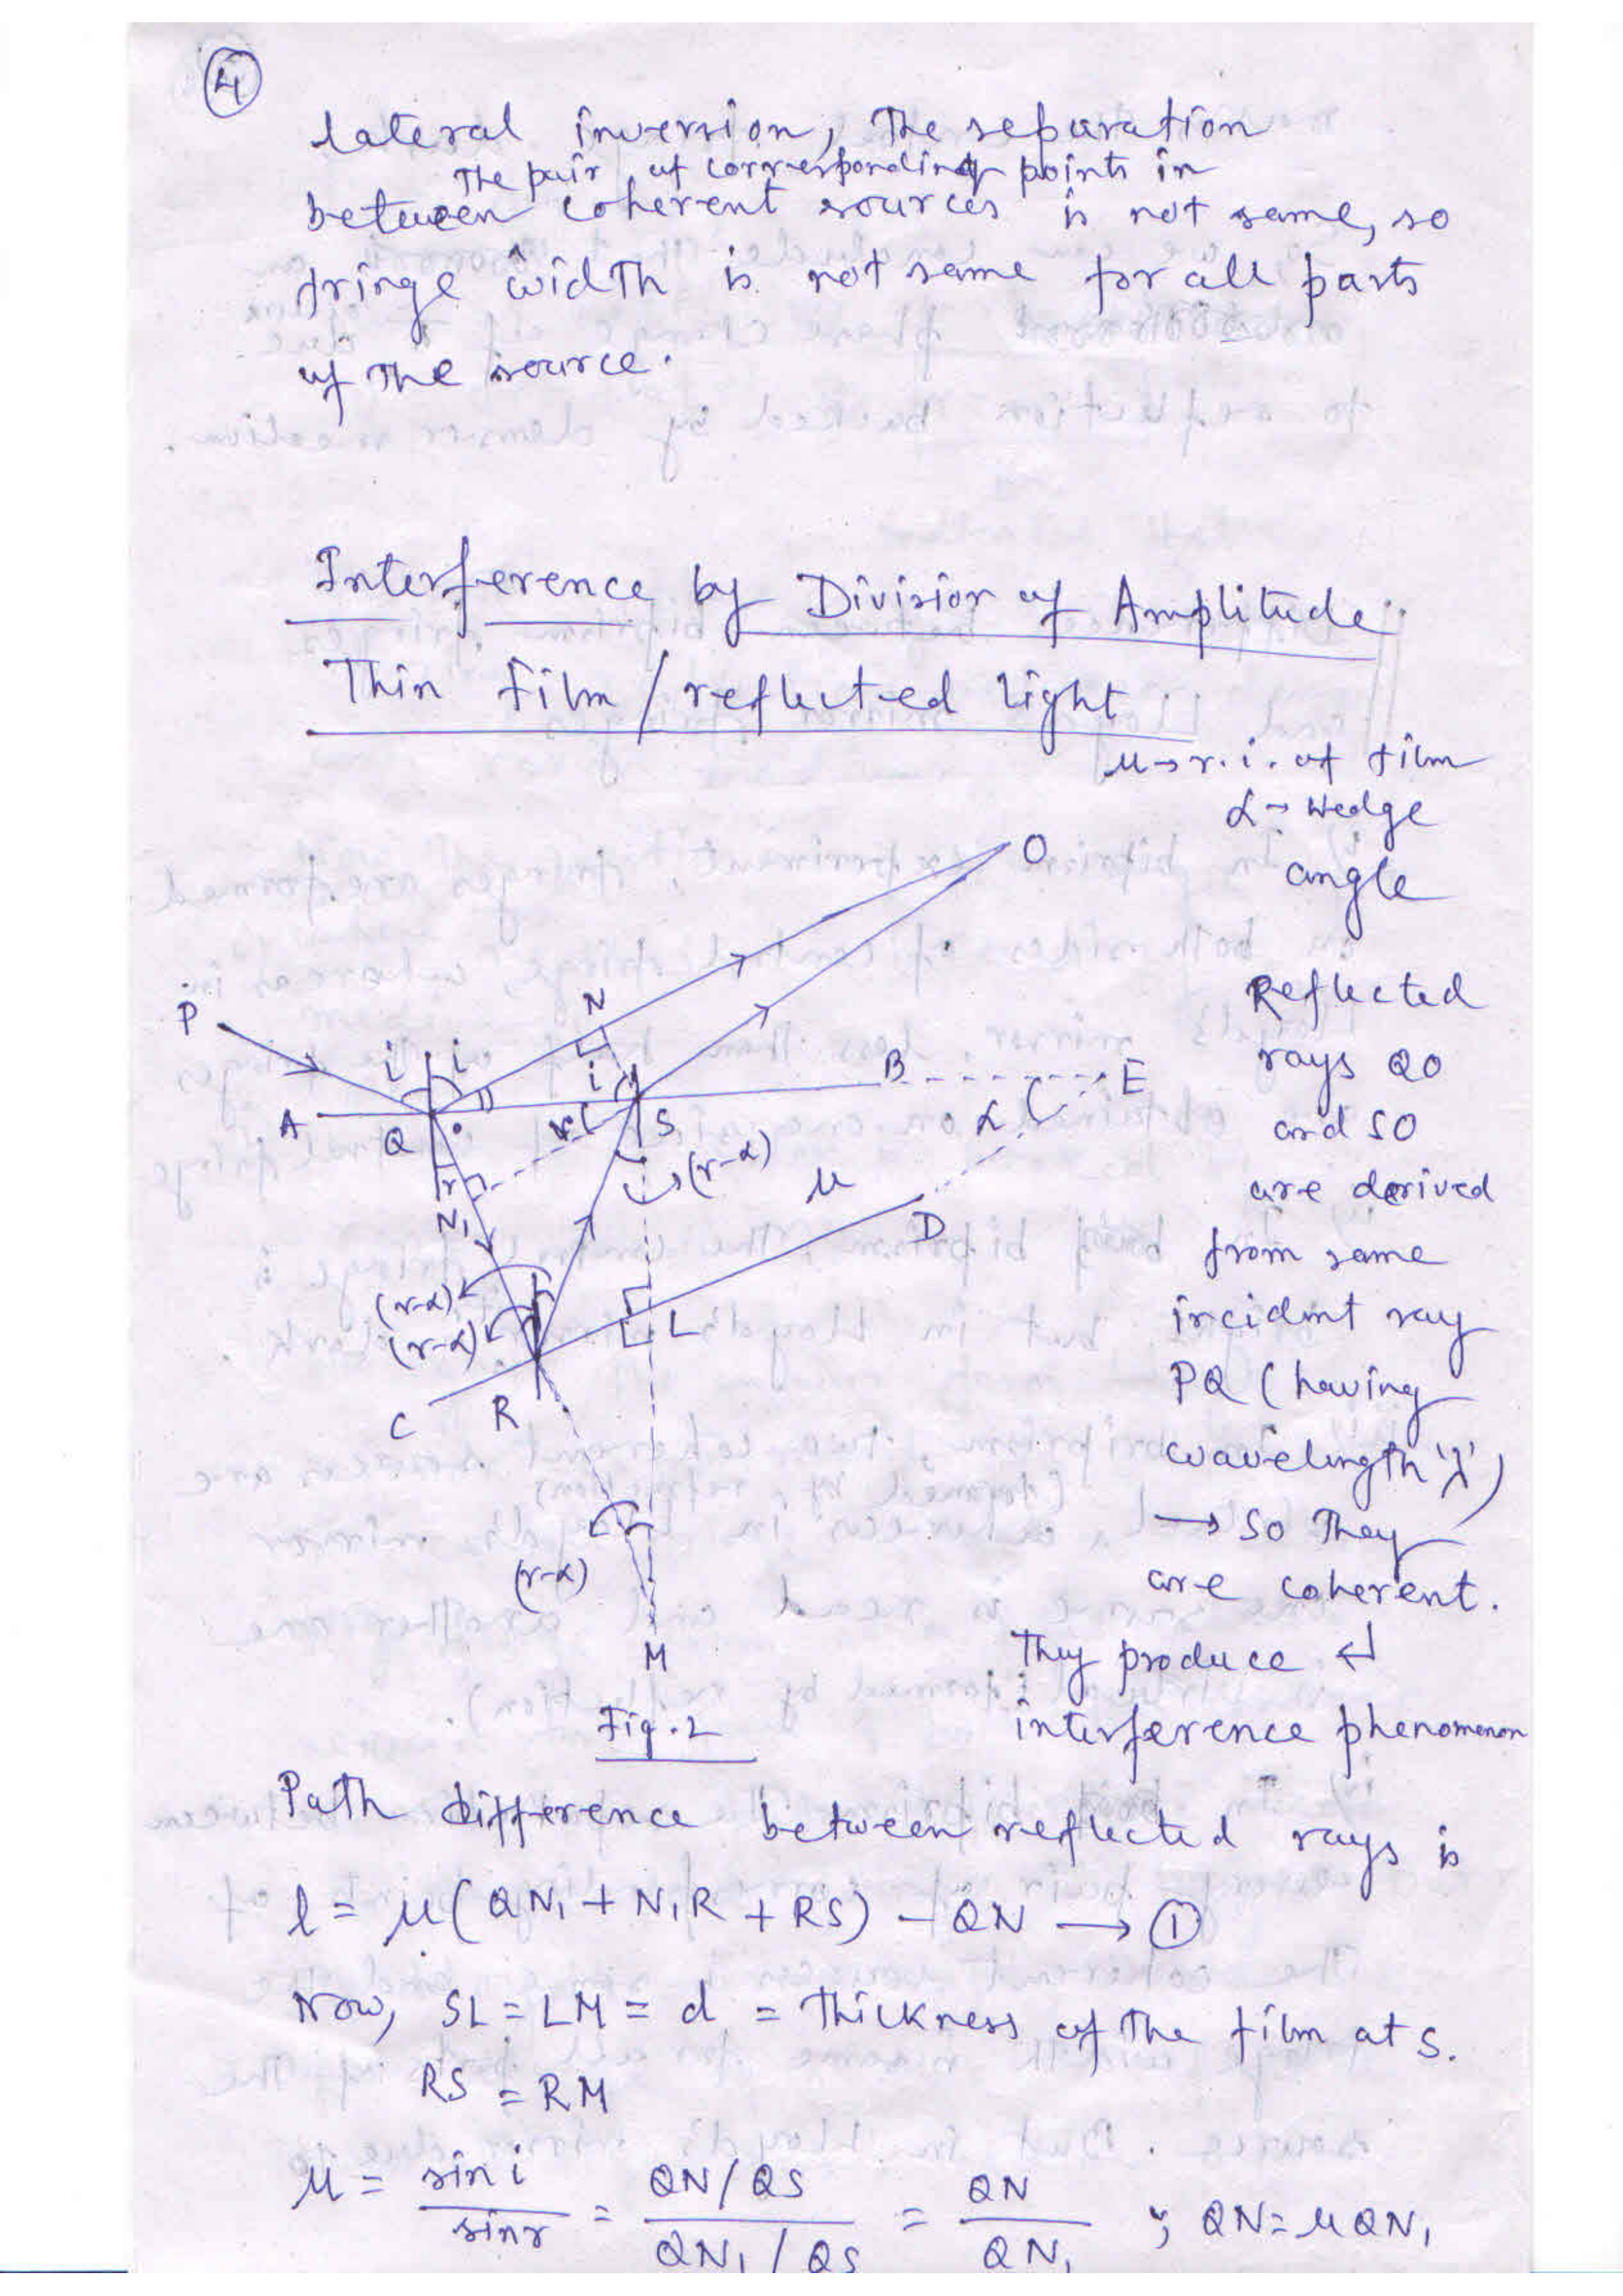 4
lateral inversion, The separation
The pair of corresponding points in
between coherent sources is not same, so
fringe width is not same for all parts
of the source.
Interference by Division of Amplitude
Thin film / reflected light
μ → r.i. of film
α → Wedge
angle
O
P
N
i i
i
A
Q
S
B
E
r
α
(r-α)
μ
r
N₁
D
(r-α)
(r-α)
L
C
R
(r-α)
M
Fig. 2
Reflected
rays QO
and SO
are derived
from same
incident ray
PQ (having
wavelength 'λ')
→ So They
are coherent.
They produce ↵
interference phenomenon
Path difference between reflected rays is
l = μ(QN₁ + N₁R + RS) - QN → ①
Now, SL = LM = d = Thickness of the film at S.
RS = RM
μ = sin i / sin r = (QN/QS) / (QN₁/QS) = QN / QN₁ ; QN = μQN₁